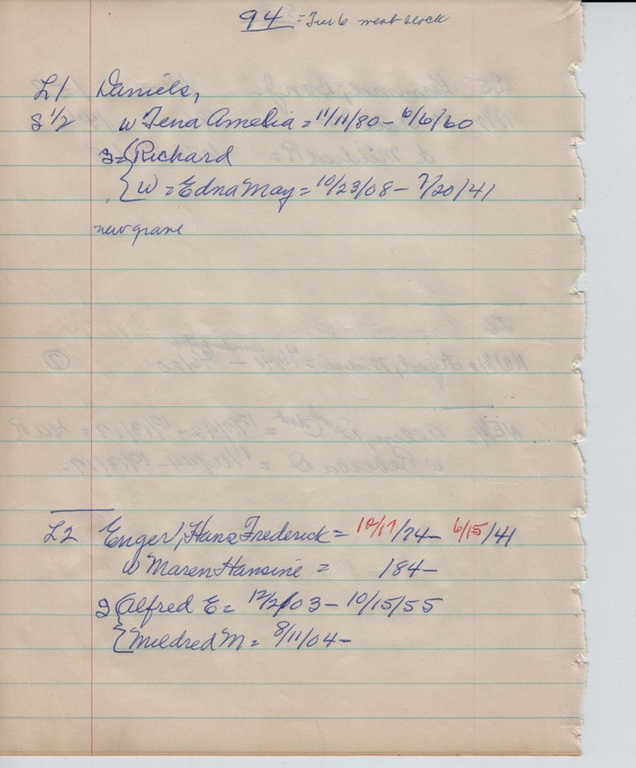 94 = west block
L1 Daniels,
S 1/2 w Tena Amelia = 11/11/80 - 6/6/60
s = { Richard
{ w = Edna May = 10/23/08 - 7/20/41
new grave
L2 Enger, Hans Frederick = 10/17/74 - 6/15/41
w Maren Hansine = 184-
s { Alfred E = 12/2/03 - 10/15/55
{ Mildred M = 8/11/04 -